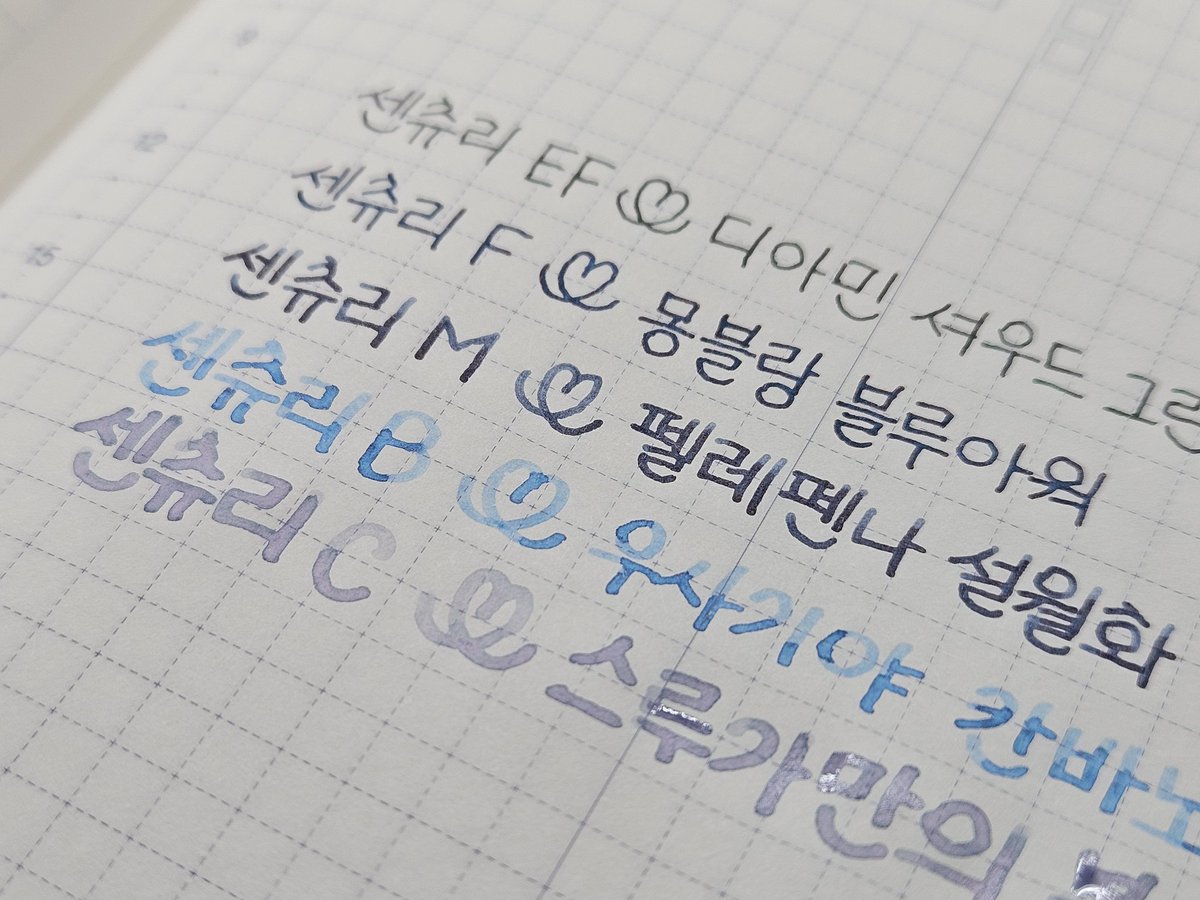 9
센츄리 EF ♡ 디아민 셔우드 그린
12
센츄리 F ♡ 몽블랑 블루아워
15
센츄리 M ♡ 펠레펜나 설월화
센츄리 B ♡ 우사기야 칸바노
센츄리 C ♡ 스루가만의